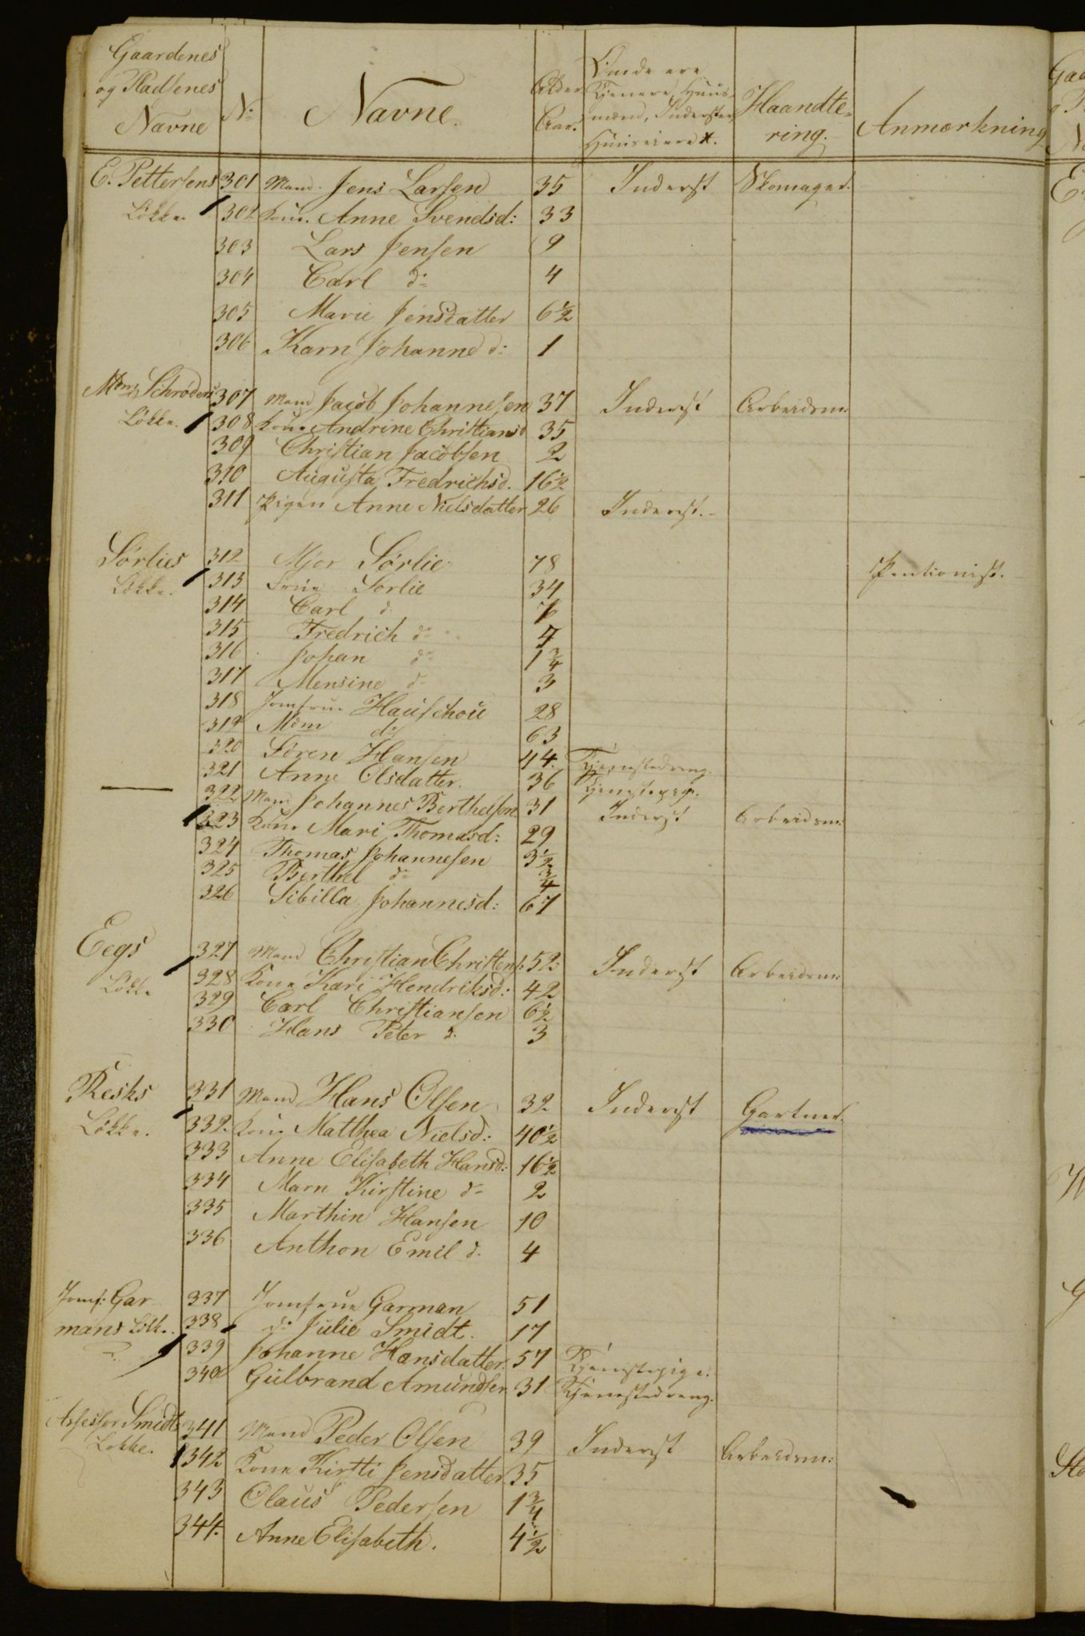 Gaardenes og Pladsenes Navne | No | Navne. | Alder Aar. | Om de ere Tjenere, Huusmænd, Inderster Huusviere &. | Haandtering. | Anmærkning
E. Pettersens 301 Mand Jens Larsen 35 Inderst Skomager.
Løkke. 302 Kone. Anne Svendsd: 33
303 Lars Jensen 9
304 Carl do 4
305 Marie Jensdatter 6½
306 Karn Johanne do: 1
Schrøders 307 Mand Jacob Johannesen 37 Inderst Arbeidsm:
Løkke. 308 Kone Andrine Christiansd 35
309 Christian Jacobsen 2
310 Augusta Fredrichsd. 16½
311 Pigen Anne Nielsdatter 26 Inderst.
Sørlies 312 Mjor Sørlie 78 Pentionist.
Løkke. 313 Frue Sørlie 34
314 Carl d
315 Fredrich do
316 Johan do 1¾
317 Mensine do 3
318 Jomfrue Hauschou 28
319 Mdm do 63
320 Søren Hansen 44. Tjenestedreng.
321 Anne Olsdatter. 36 Tjenestepige.
— 322 Mand Johannes Berthelsen 31 Inderst Arbeidsm:
323 Kone Mari Thomasd: 29
324 Thomas Johannesen 3½
325 Berthel do ¾
326 Sibilla Johannesd: 67
Eegs 327 Mand Christian Christens: 52 Inderst Arbeidsm:
Løkke 328 Kone Kari Hendriksd: 42
329 Carl Christiansen 6½
330 Hans Peter d. 3
Resks 331 Mand Hans Olsen 32 Inderst Gartner.
Løkke. 332. Kone Matthea Nielsd: 40½
333 Anne Elisabeth Hansd: 16½
334 Marn Kirstine do 2
335 Marthin Hansen 10
336 Anthon Emil d. 4
Jomf: Gar- 337 Jomfrue Garman 51
mans Løkke. 338 do Julie Smidt. 17
339 Johanne Hansdatter 57 Tjenestepige.
340 Gulbrand Amundsen 31 Tjenestedreng.
Assessor Smidts 341 Mand Peder Olsen 39 Inderst Arbeidsm:
Løkke. 342 Kone Kirsti Jensdatter 35
343 Olaus Pedersen 1¾
344. Anne Elisabeth. 4½